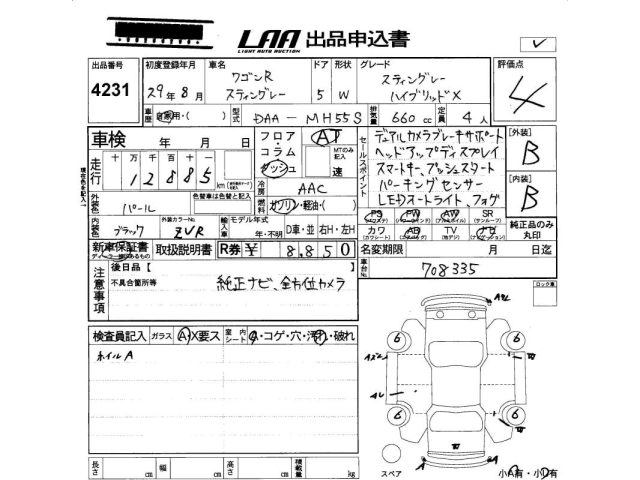 LAA 出品申込書
LIGHT AUTO AUCTION
出品番号 初度登録年月 車名 ドア 形状 グレード 評価点
4231 29年8月 ワゴンR スティングレー 5 W スティングレー ハイブリッドX 4
車歴 自家用・( ) 型式 DAA-MH55S 排気量 660cc 定員 4人
車検 年 月 日
フロア・コラム ダッシュ AT MTのみ記入 速
走行 十 万 千 百 十 一
1 2 8 8 5 km
冷房 AAC
燃料 ガソリン・軽油・( )
セールスポイント
デュアルカメラブレーキサポート
ヘッドアップディスプレイ
スマートキー、プッシュスタート
パーキングセンサー
LEDオートライト、フォグ
【外装】
B
【内装】
B
現在色を記入→
外装色 パール 色替車は色替と記入
内装色 ブラック 外装カラーNo. ZVR
輸入車 モデル年式 年・不明 D車・並 右H・左H
PS PW AW SR
カワ AB TV ナビ
純正品のみ丸印
新車保証書 取扱説明書 R券 ¥ 8,850
名変期限 月 日迄
車台No. 708335
注意事項
後日品【
不具合箇所等 純正ナビ、全方位カメラ
ロック車
検査員記入 ガラス A・X要ス 室内シート A・コゲ・穴・汚れ・破れ
ホイルA
6 6
6 6
スペア
小A有・小U有
長さ cm 幅 cm 高さ cm 積載量 kg